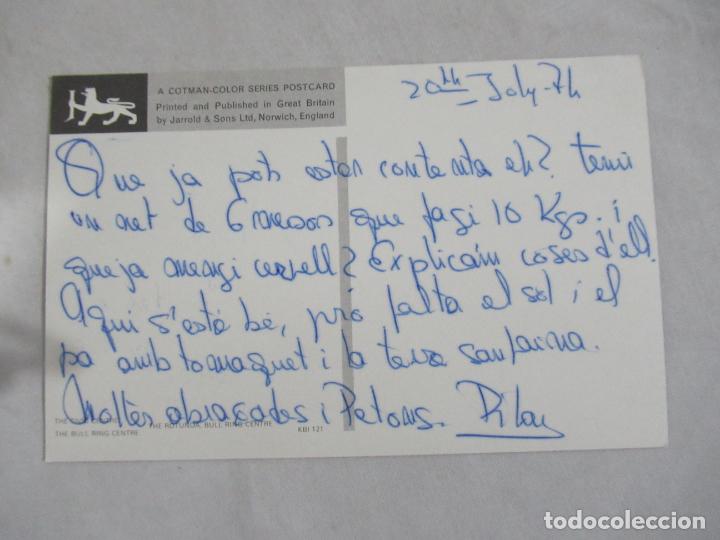 A COTMAN-COLOR SERIES POSTCARD
Printed and Published in Great Britain
by Jarrold & Sons Ltd, Norwich, England
20th July-74
Que ja pots estar contenta eh? tenir
un net de 6 mesos que fagi 10 Kgs. i
que ja mengi cervell? Explica'm coses d'ell.
Aquí s'està bé, pró falta el sol i el
pa amb tomaquet i la teva sanfaina.
Moltes abraçades i Petons. Pilar
THE ROTUNDA, BULL RING CENTRE
THE BULL RING CENTRE
KBI 121
todocoleccion
todocoleccion.net